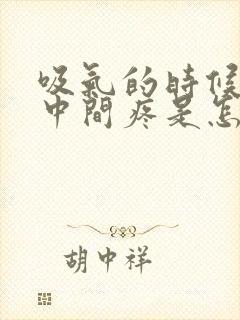 吸氣的時候
中間疼是怎
胡中祥